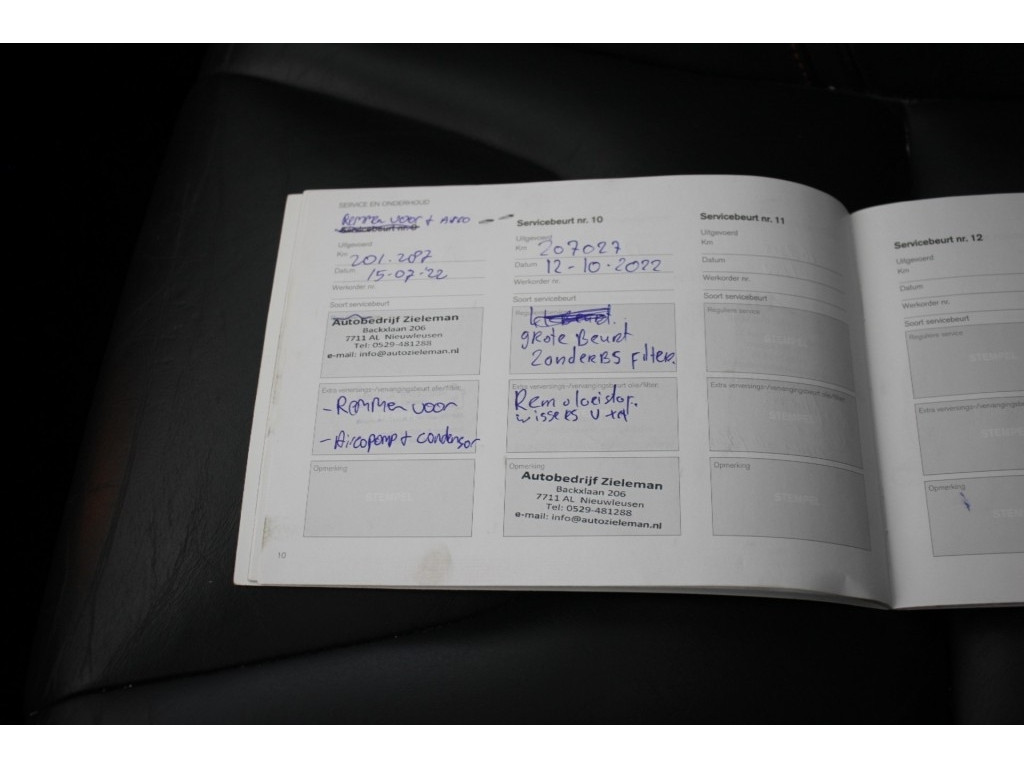 SERVICE EN ONDERHOUD
Remmen voor + Airo
Servicebeurt nr. 9
Uitgevoerd
Km 201.287
Datum 15-07-'22
Werkorder nr.
Soort servicebeurt
Autobedrijf Zieleman
Backxlaan 206
7711 AL Nieuwleusen
Tel: 0529-481288
e-mail: info@autozieleman.nl
Extra verversings-/vervangingsbeurt olie/filter
- Remmen voor
- Aircopomp + condensor
Opmerking
STEMPEL
10
Servicebeurt nr. 10
Uitgevoerd
Km 207027
Datum 12-10-2022
Werkorder nr.
Soort servicebeurt
grote Beurt
Zonder BS filter.
Extra verversings-/vervangingsbeurt olie/filter
Remvloeistof.
wissers V+A
Opmerking
Autobedrijf Zieleman
Backxlaan 206
7711 AL Nieuwleusen
Tel: 0529-481288
e-mail: info@autozieleman.nl
Servicebeurt nr. 11
Uitgevoerd
Km
Datum
Werkorder nr.
Soort servicebeurt
Reguliere service
STEMPEL
Extra verversings-/vervangingsbeurt olie/filter
STEMPEL
Opmerking
STEMPEL
Servicebeurt nr. 12
Uitgevoerd
Km
Datum
Werkorder nr.
Soort servicebeurt
Reguliere service
STEMPEL
Extra verversings-/vervangingsbeurt
STEMPEL
Opmerking